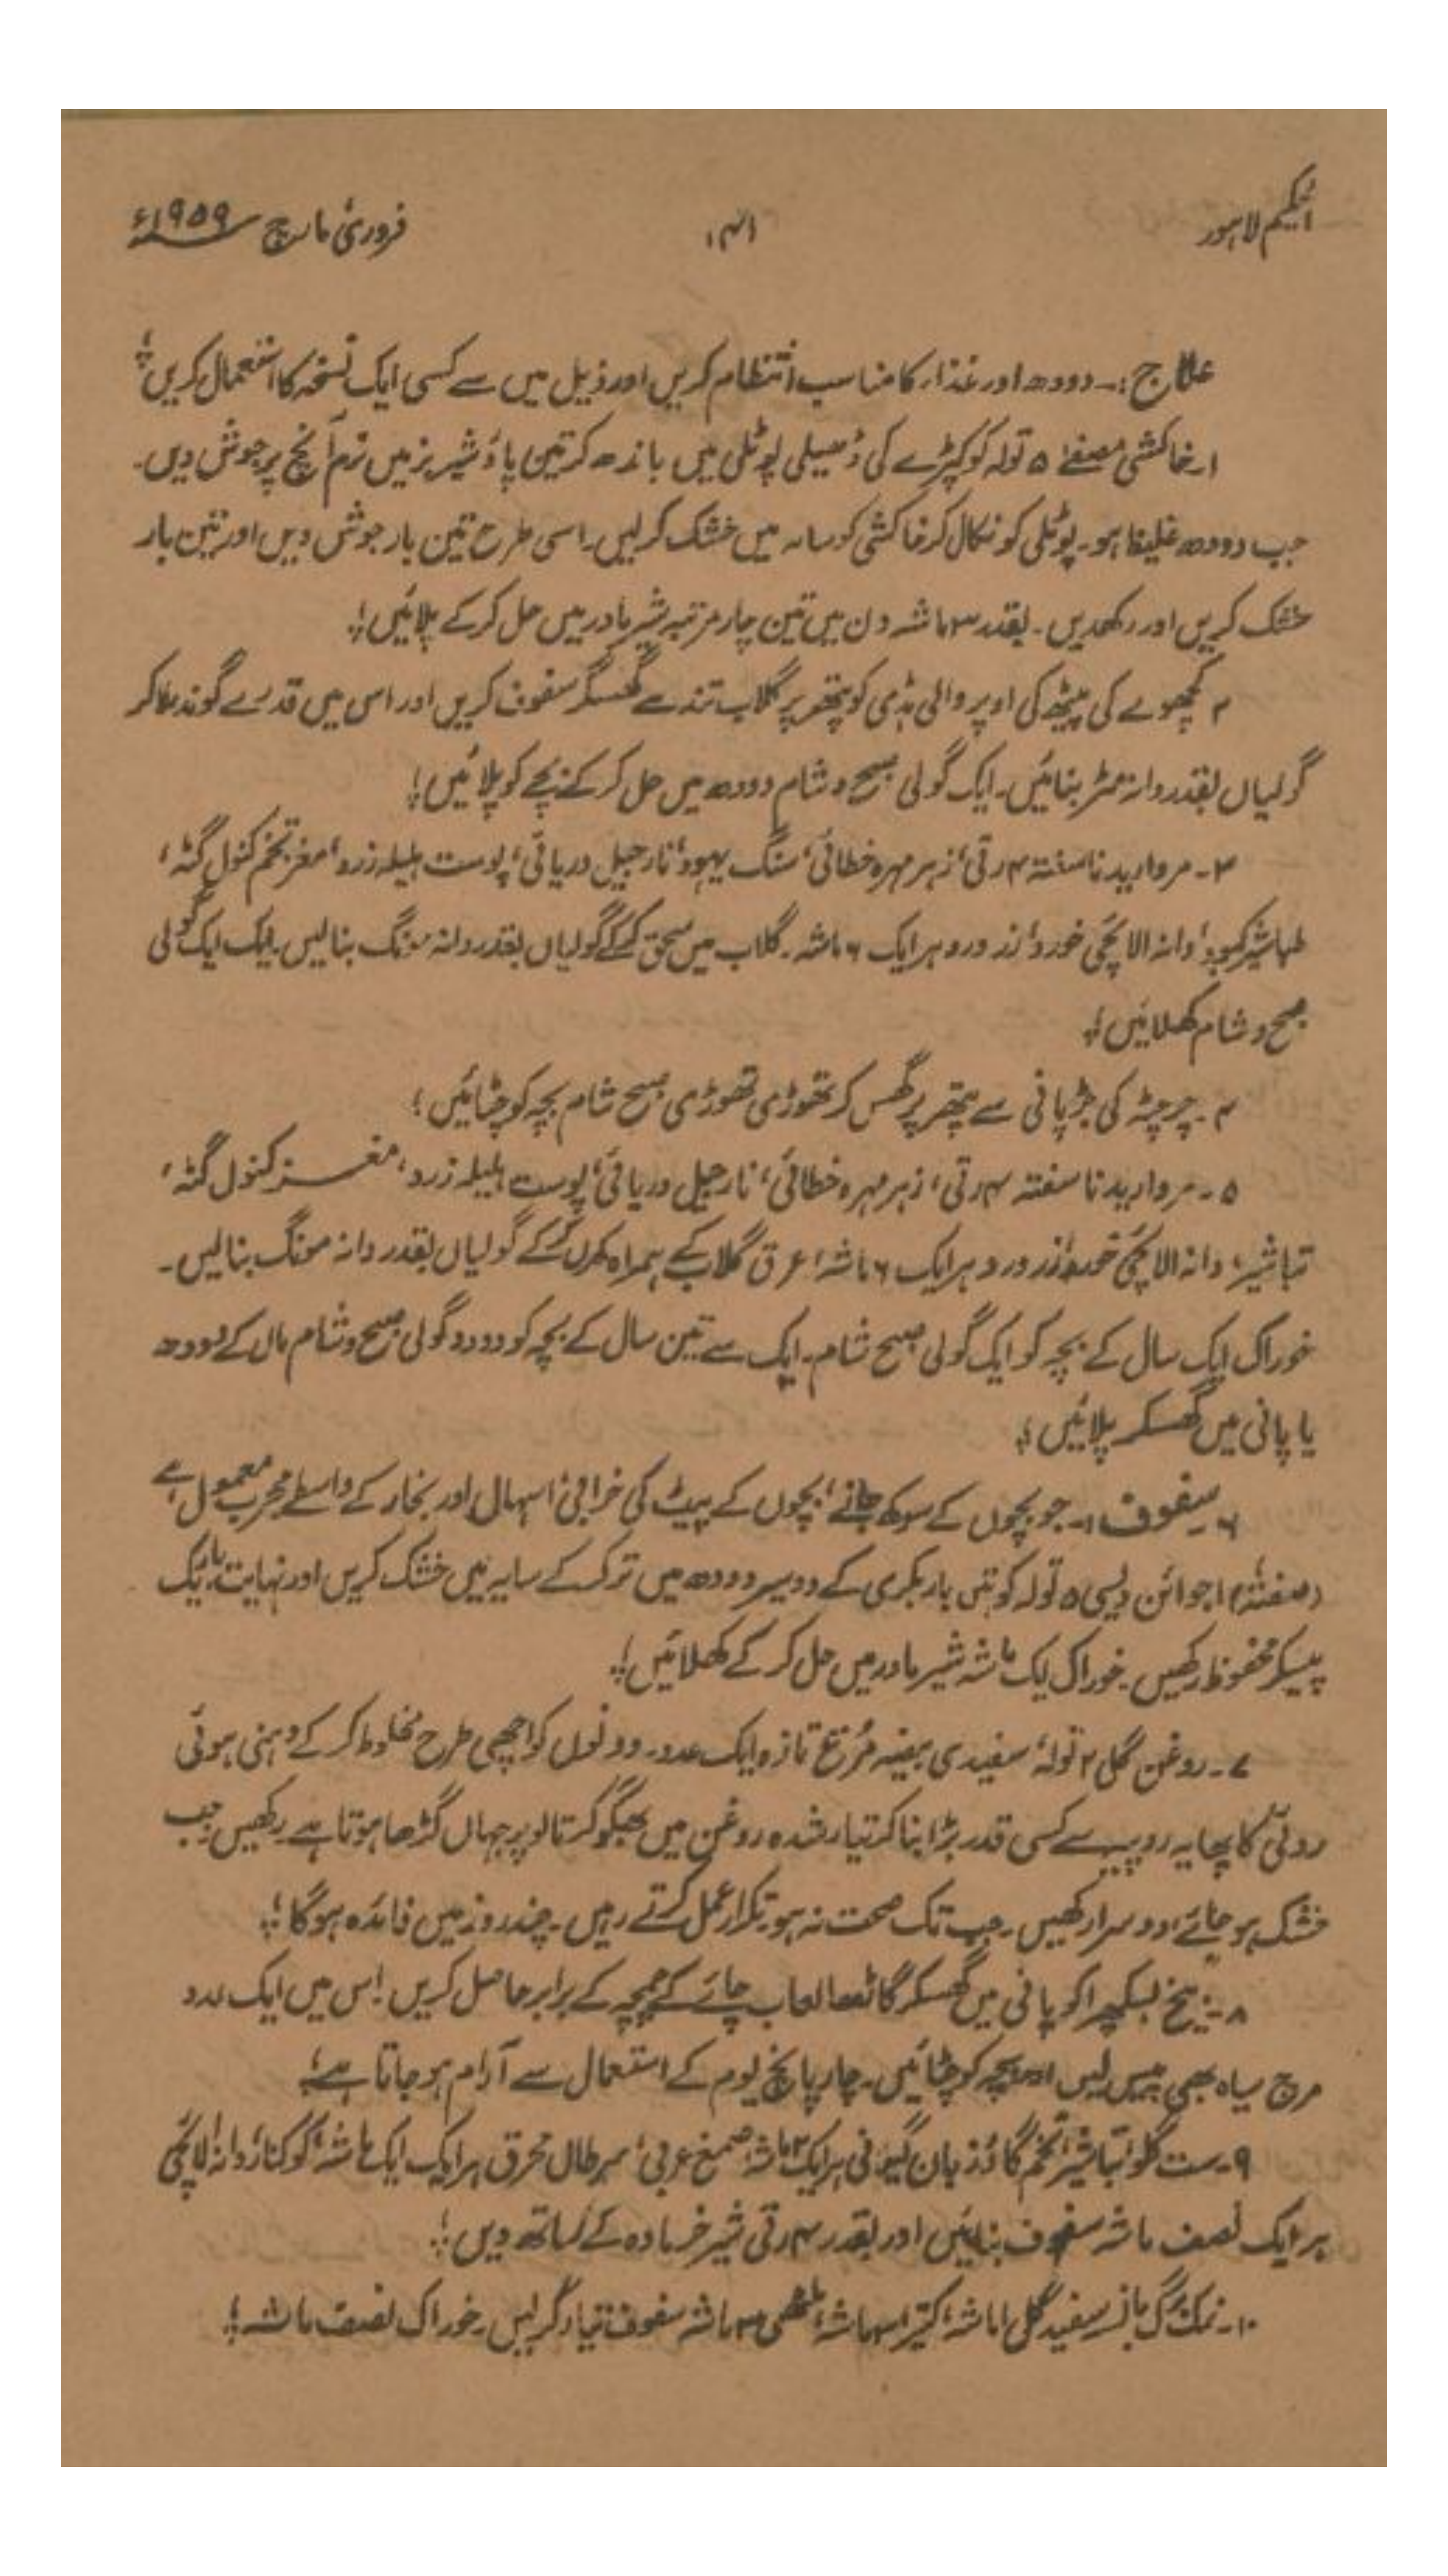 الحکیم لاہور
۱۴۱
فروری مارچ ۱۹۵۹ء
علاج:۔ دودھ اور غذا، کا مناسب انتظام کریں اور ذیل میں سے کسی ایک نسخہ کا استعمال کریں؛
۱۔ خاکشی مصفےٰ ۵ تولہ کو کپڑے کی ڈھیلی پوٹلی میں باندھ کر تین پاؤ شیر بز میں نرم آنچ پر جوش دیں۔
جب دودھ غلیظ ہو۔ پوٹلی کو نکال کر خاکشی کو سایہ میں خشک کر لیں۔ اسی طرح تین بار جوش دیں اور تین بار
خشک کریں اور رکھدیں۔ بقدر ۳ ماشہ دن میں تین چار مرتبہ شیر مادر میں حل کر کے پلائیں؛
۲ کچھوے کی پیٹھ کی اوپر والی ہڈی کو پتھر پر گلاب تند سے گھسکر سفوف کریں اور اس میں قدرے گوند ملا کر
گولیاں بقدر دانہ مٹر بنائیں۔ ایک گولی صبح و شام دودھ میں حل کر کے بچے کو پلائیں؛
۳۔ مروارید ناسفتہ ۴ رتی، زہر مہرہ خطائی، سنگ یہود، نارجیل دریائی، پوست ہلیلہ زرد، مغز تخم کنول گٹہ،
طباشیر کبود، دانہ الائچی خورد، زرورد ہر ایک ۶ ماشہ۔ گلاب میں سحق کر کے گولیاں بقدر دانہ مونگ بنالیں۔ ایک ایک گولی
صبح و شام کھلائیں؛
۴۔ چرچٹہ کی جڑ پانی سے پتھر پر گھس کر تھوڑی تھوڑی صبح شام بچہ کو چٹائیں؛
۵۔ مروارید ناسفتہ ۴ رتی، زہر مہرہ خطائی، نارجیل دریائی، پوست ہلیلہ زرد، مغز کنول گٹہ،
تباشیر، دانہ الائچی خورد، زرورد ہر ایک ۶ ماشہ، عرق گلاب کے ہمراہ کھرل کر کے گولیاں بقدر دانہ مونگ بنالیں۔
خوراک ایک سال کے بچہ کو ایک گولی صبح شام۔ ایک سے تین سال کے بچہ کو دو دو گولی صبح و شام ماں کے دودھ
یا پانی میں گھسکر پلائیں؛
۶ سفوف:۔ جو بچوں کے سوکھ جانے، بچوں کے پیٹ کی خرابی، اسہال اور بخار کے واسطے مجرب معمول ہے
اجوائن دیسی ۵ تولہ کو تین بار بکری کے دو سیر دودھ میں تر کر کے سایہ میں خشک کریں اور نہایت باریک
پیسکر محفوظ رکھیں۔ خوراک ایک ماشہ شیر مادر میں حل کر کے کھلائیں؛
۷۔ روغن گل ۲ تولہ، سفیدی بیضہ مُرغ تازہ ایک عدد۔ دونوں کو اچھی طرح مخلوط کر کے دہنی ہوئی
روئی کا پھایہ روپیہ سے کسی قدر بڑا بنا کر تیار شدہ روغن میں بھگو کر تالو پر جہاں گڑھا ہوتا ہے رکھیں جب
خشک ہو جائے، دوسرا رکھیں۔ جب تک صحت نہ ہو تکرار عمل کرتے رہیں۔ چند روز میں فائدہ ہوگا؛
۸۔ بیخ بسکھپرا کو پانی میں گھسکر گاڑھا لعاب چائے کے چمچہ کے برابر حاصل کریں اس میں ایک عدد
مرچ سیاہ بھی پیس لیں اور بچہ کو چٹائیں۔ چار پانچ یوم کے استعمال سے آرام ہو جاتا ہے؛
۹۔ ست گلو، تباشیر، تخم گاؤزبان گیلانی ہر ایک ۲ ماشہ، صمغ عربی، سرطان محرق ہر ایک ایک ماشہ، کوکنار، دانہ الائچی
ہر ایک نصف ماشہ سفوف بنائیں اور بقدر ۴ رتی شیر خر مادہ کے ساتھ دیں؛
۱۰۔ نمک برگ بانسہ سفید گل ا ماشہ، کتیرا ۳ ماشہ، ملٹھی ۳ ماشہ سفوف تیار کر لیں۔ خوراک نصف ماشہ؛